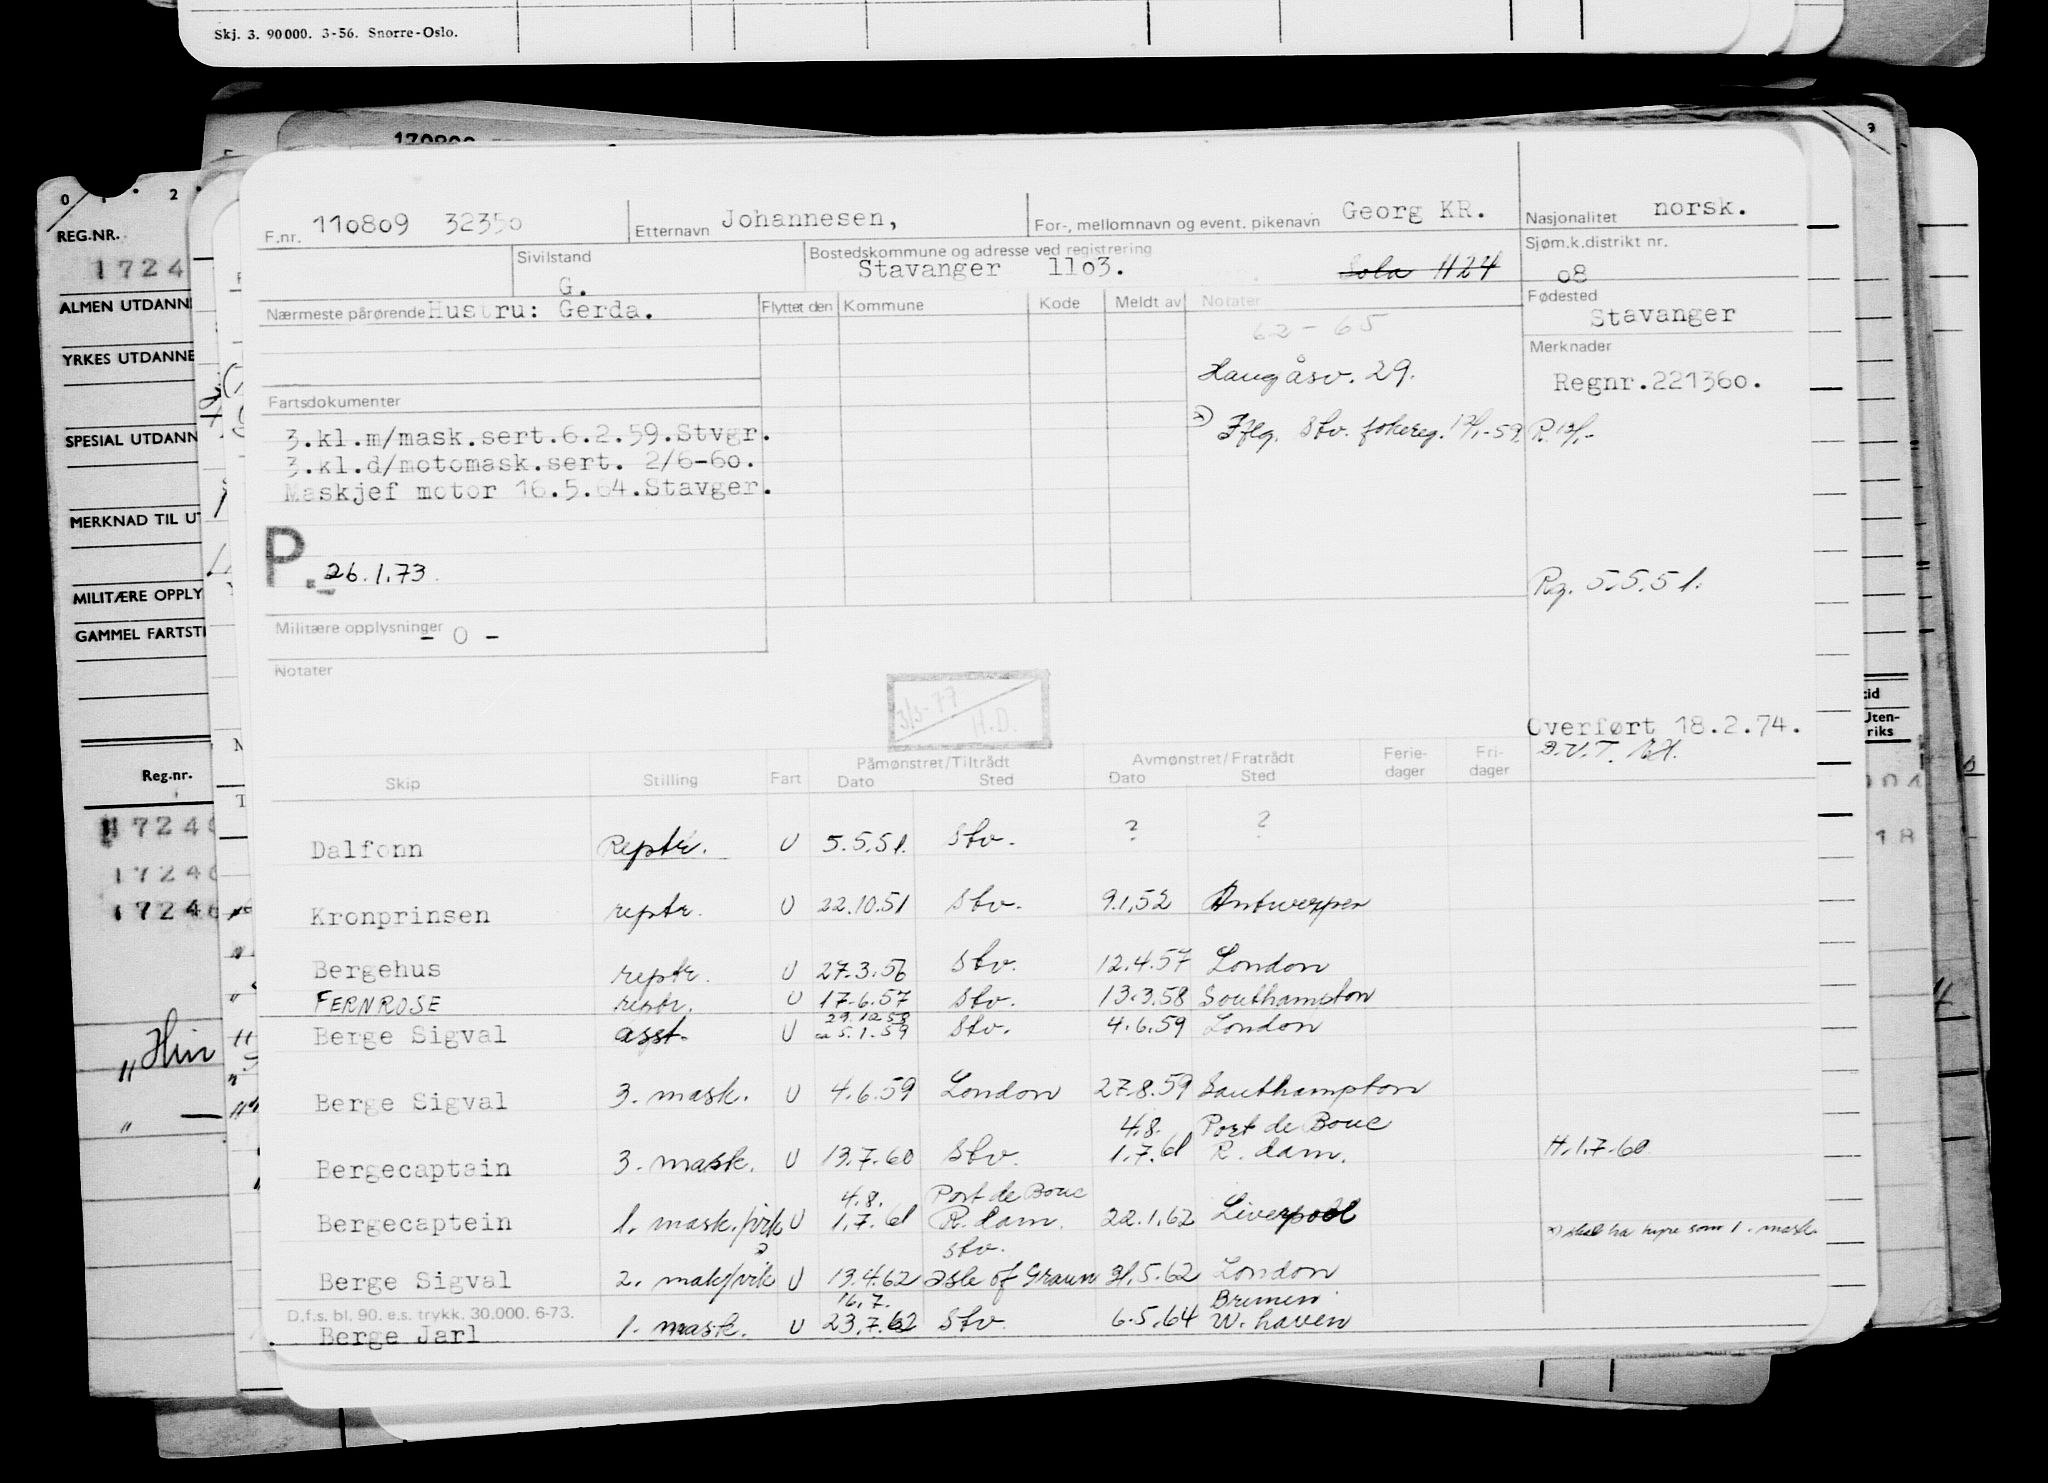 Skj. 3. 90000. 3-56. Snorre-Oslo.
170809
0 1 2
REG.NR.
1724
ALMEN UTDANNE
YRKES UTDANNE
SPESIAL UTDANN
MERKNAD TIL UT
MILITÆRE OPPLY
GAMMEL FARTSTI
Reg.nr.
17240
17240
17246
„Hin
„ —
F.nr. 110809 32350 Etternavn Johannesen, For-, mellomnavn og event. pikenavn Georg KR. Nasjonalitet norsk.
Sivilstand G. Bostedskommune og adresse ved registrering Stavanger 11o3. Sola 1124 Sjøm.k.distrikt nr. 08
Nærmeste pårørende Hustru: Gerda. Flyttet den Kommune Kode Meldt av Notater Fødested Stavanger
62-65
Merknader
Haugåsv. 29.
Regnr.221360.
Fartsdokumenter
3.kl.m/mask.sert.6.2.59.Stvgr.
x) Iflg. Stv. folkereg. 12/1-59. R.12/1-
3.kl.d/motomask.sert. 2/6-60.
Maskjef motor 16.5.64.Stavger.
P. 26.1.73.
Rg. 5.5.51.
Militære opplysninger - 0 -
Notater
3/3-77 H.D.
Overført 18.2.74.
B.U.T.
Skip Stilling Fart Påmønstret/Tiltrådt Dato Sted Avmønstret/Fratrådt Dato Sted Ferie-dager Fri-dager
Dalfonn Reptr. U 5.5.51. Stv. ? ?
Kronprinsen reptr. U 22.10.51 Stv. 9.1.52 Antwerpen
Bergehus reptr. U 27.3.56 Stv. 12.4.57 London
FERNROSE reptr. U 17.6.57 Stv. 13.3.58 Southampton
29.12.58
Berge Sigval asst. U 5.1.59 Stv. 4.6.59 London
Berge Sigval 3. mask. U 4.6.59 London 27.8.59 Southampton
4.8. Port de Bouc
Bergecaptein 3. mask. U 13.7.60 Stv. 1.7.61 R.dam. H.1.7-60
4.8. Port de Bouc
Bergecaptein 1. mask./vik U 1.7.61 R.dam. 22.1.62 Liverpool
x) skal ha hyre som 1. mask.
Stv.
Berge Sigval 2. mask/vik U 13.4.62 Isle of Graun 31.5.62 London
D.f.s. bl. 90. e.s. trykk. 30.000. 6-73.
16.7. Bremen
Berge Jarl 1. mask. U 23.7.62 Stv. 6.5.64 W.haven